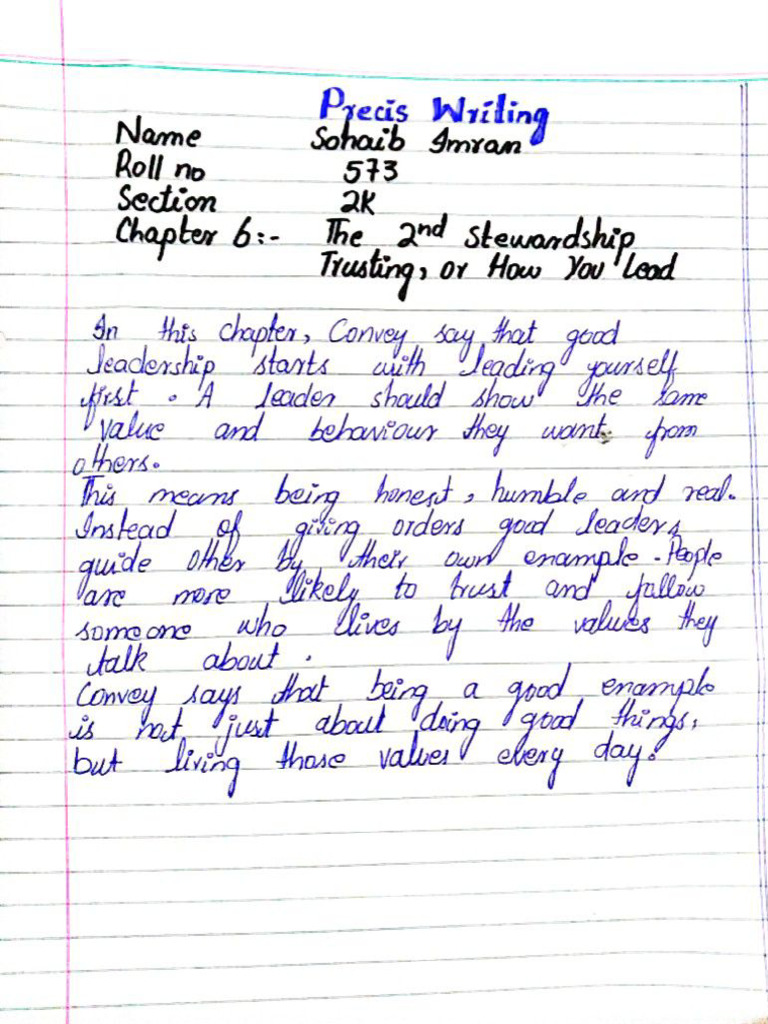 Precis Writing
Name Sohaib Imran
Roll no 573
Section 2K
Chapter 6:- The 2nd Stewardship
Trusting, or How You Lead
In this chapter, Convey say that good
leadership starts with leading yourself
first. A leader should show the same
value and behaviour they want from
others.
This means being honest, humble and real.
Instead of giving orders good leaders
guide other by their own enample. People
are more likely to trust and follow
someone who lives by the values they
talk about.
Convey says that being a good enample
is not just about doing good things,
but living those values every day.